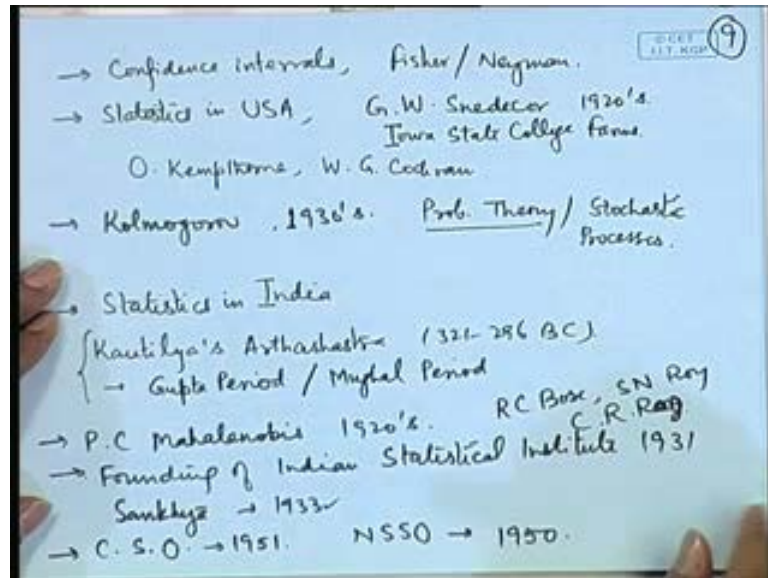 © CET
I.I.T. KGP
9
→ Confidence intervals, Fisher / Neyman.
→ Statistics in USA, G.W. Snedecor 1920's.
Iowa State College Farms.
O. Kempthorne, W. G. Cochran
→ Kolmogorov, 1930's. Prob. Theory / Stochastic
Processes.
→ Statistics in India
Kautilya's Arthashastra (321-296 BC)
→ Gupta Period / Mughal Period
→ P.C Mahalanobis 1920's. RC Bose, SN Roy
C. R. Rao
→ Founding of Indian Statistical Institute 1931
Sankhya → 1933
→ C. S. O. → 1951. NSSO → 1950.